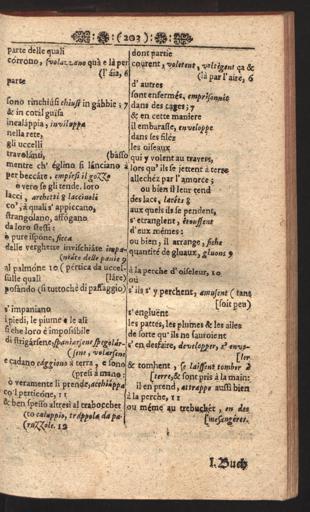 (203)
parte delle quali
corrono, svolazzano quà e là per
[l'aia, 6
parte
sono rinchiusi chiusi in gabbie; 7
& in cotal guisa
inealappia, inviluppa
nella rete,
gli uccelli
travolanti, (basso
mentre ch' eglino si lanciano à
per beccare, empirsi il gozzo
ò vero se gli tende, loro
lacci, archetti 8 laccinoli
co', à quali s' appiccano,
strangolano, affogano
da loro stessi:
ò pure ispone, ficca
delle verghette invischiate impa-
(niate delle panie 9
al palmone 10 (pertica da uccel-
sulle quali [lare)
posando (sì tuttoche di passaggio)
s' impaniano
i piedi, le piume e le ali
sì che loro è impossibile
di strigarsene, spaniarsene spegolar-
(sene, volarsene
e cadano caggiono à terra, e sono
(presi à mano:
ò veramente li prende, acchiappa
co l perticone, 11
& ben spesso altresi al trabocchet
(to caluppio, trappola da pa-
(ruzzole. 12
dont partie
courent, voletent, voltigent ça &
(là par l'aire, 6
d' autres
sont enfermés, emprisonnés
dans des cages; 7
& en cette maniere
il embarasse, enveloppe
dans ses filés
les oiseaux
qui y volent au travers,
lors qu' ils se jettent à terre
allechés par l'amorce;
ou bien il leur tend
des lacs, lacets 8
aux quels ils se pendent,
s' etranglent, étouffent
d' eux mêmes:
ou bien, il arrange, fiche
quantité de gluaux, gluons 9
à la perche d'oiseleur, 10
où
s' ils s' y perchent, amusent (tant
[soit peu)
s' engluent
les pattes, les plumes & les ailes
de sorte qu' ils ne sauroient
s' en desfaire, developper, s' envo-
[ler
& tombent, se laissent tomber à
[terre, & sont pris à la main:
il en prend, attrappe aussi bien
à la perche, 11
ou même au trebuchet, en des
[mesangeres.
I. Buch